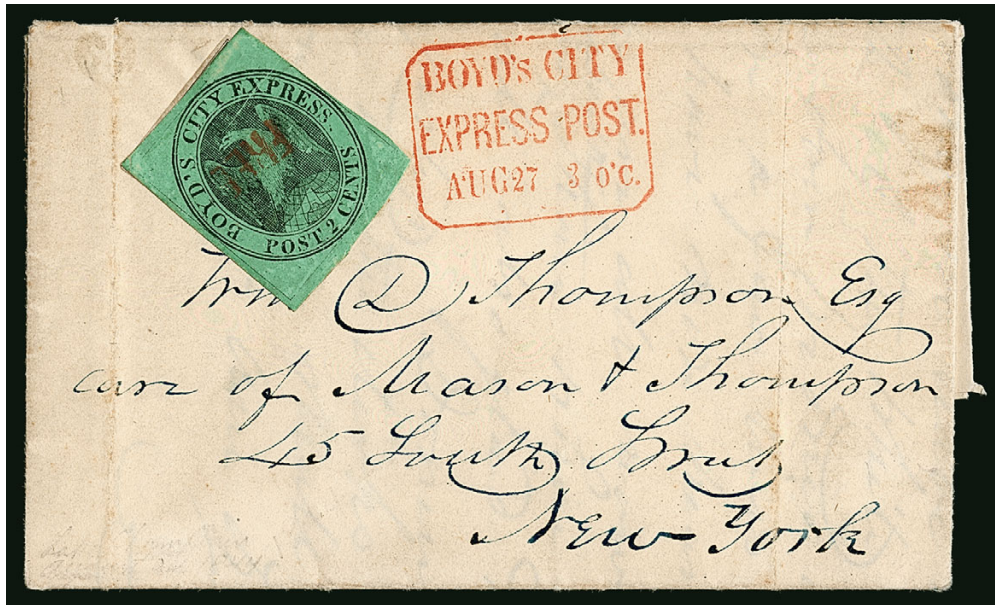 BOYD'S CITY EXPRESS.
POST 2 CENTS
BOYD's CITY
EXPRESS POST.
AUG 27 3 O'C.
Wm D Thompson Esq
care of Mason & Thompson
45 South Street
New York